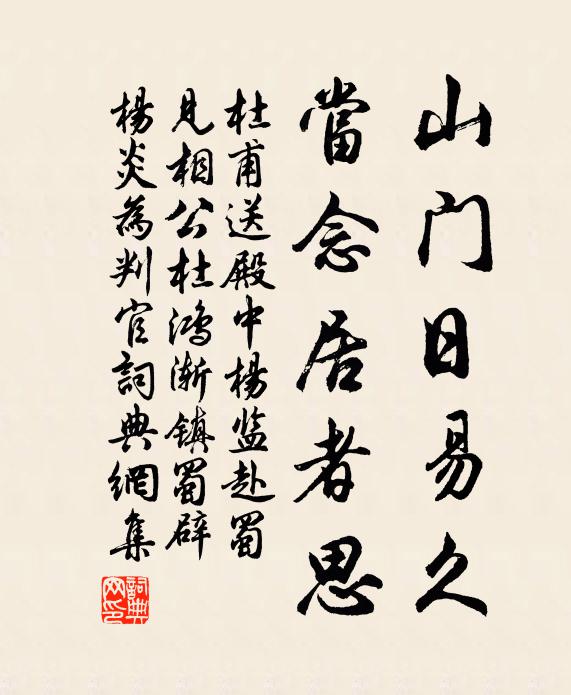 山门日易久
當念居者思
杜甫送殿中楊监赴蜀
見相公杜鴻漸鎮蜀辟
楊炎為判官詞典網集
詞典网印